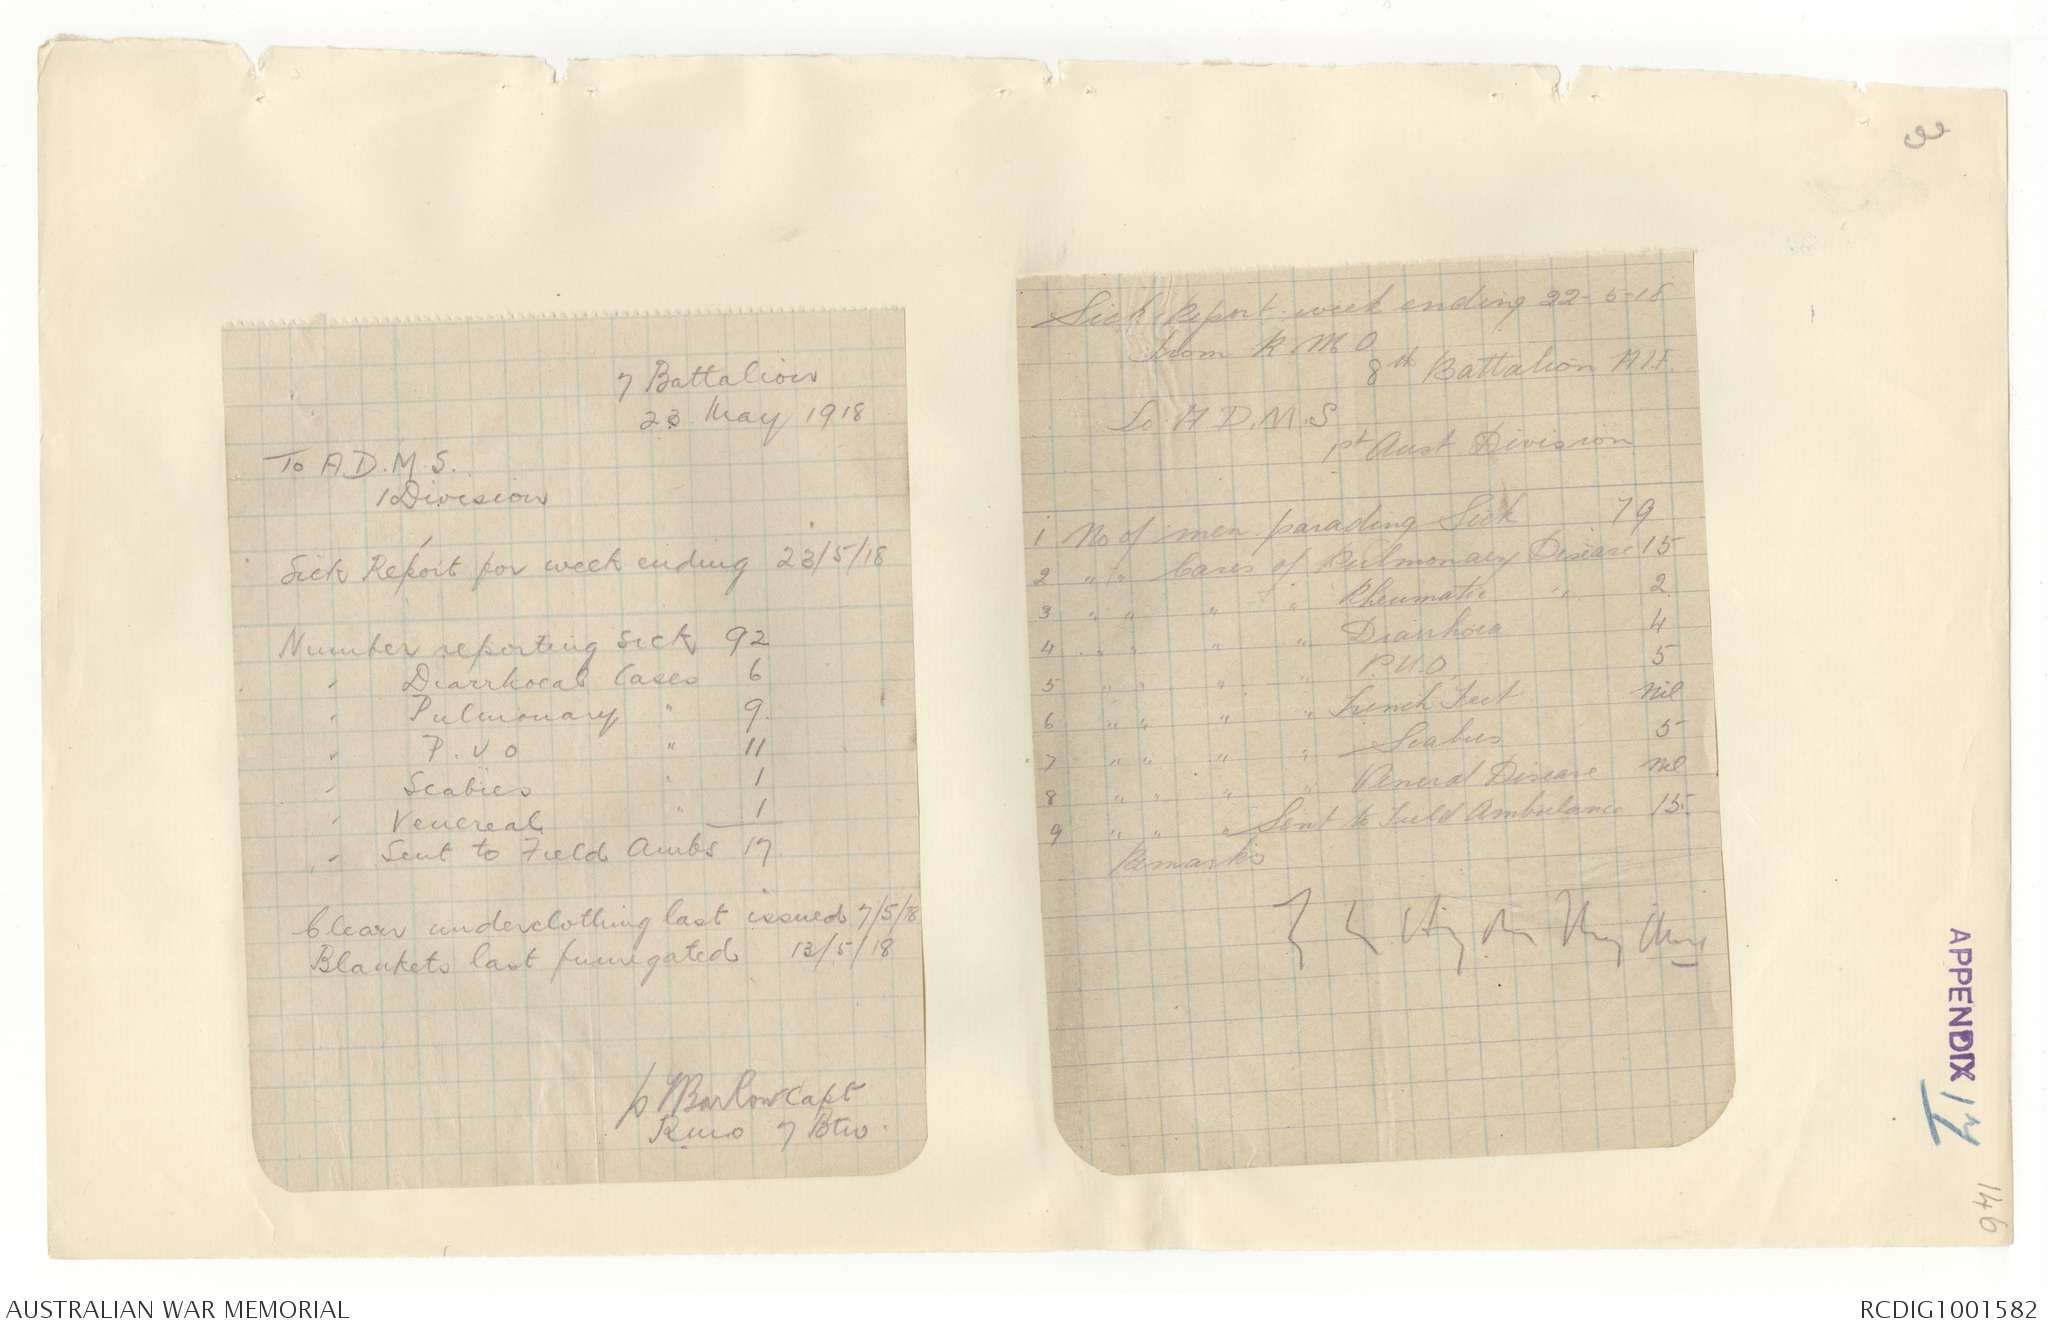 7 Battalion
23 May 1918
To A.D.M.S.
1 Division
Sick Report for week ending 23/5/18
Number reporting sick 92
" Diarrhoeal Cases 6
" Pulmonary " 9.
" P.U.O " 11
" Scabies " 1
" Venereal " 1
" Sent to Field Ambs 17.
Clean underclothing last issued 7/5/18
Blankets last fumigated 13/5/18
Barlow Capt
RMO 7 Btn.
Sick Report week ending 22-5-18
from R M O
8th Battalion A.I.F.
To A.D.M.S
1st Aust Division
1 No of men parading Sick 79
2 " " Cases of Pulmonary Disease 15
3 " " " " Rheumatic " 2
4 " " " " Diarrhoea 4
5 " " " " P.U.O. 5
6 " " " " Trench Feet nil
7 " " " " Scabies 5
8 " " " " Veneral Disease nil
9 " " " Sent to Field Ambulance 15.
Remarks
APPENDIX 14
146
AUSTRALIAN WAR MEMORIAL
RCDIG1001582